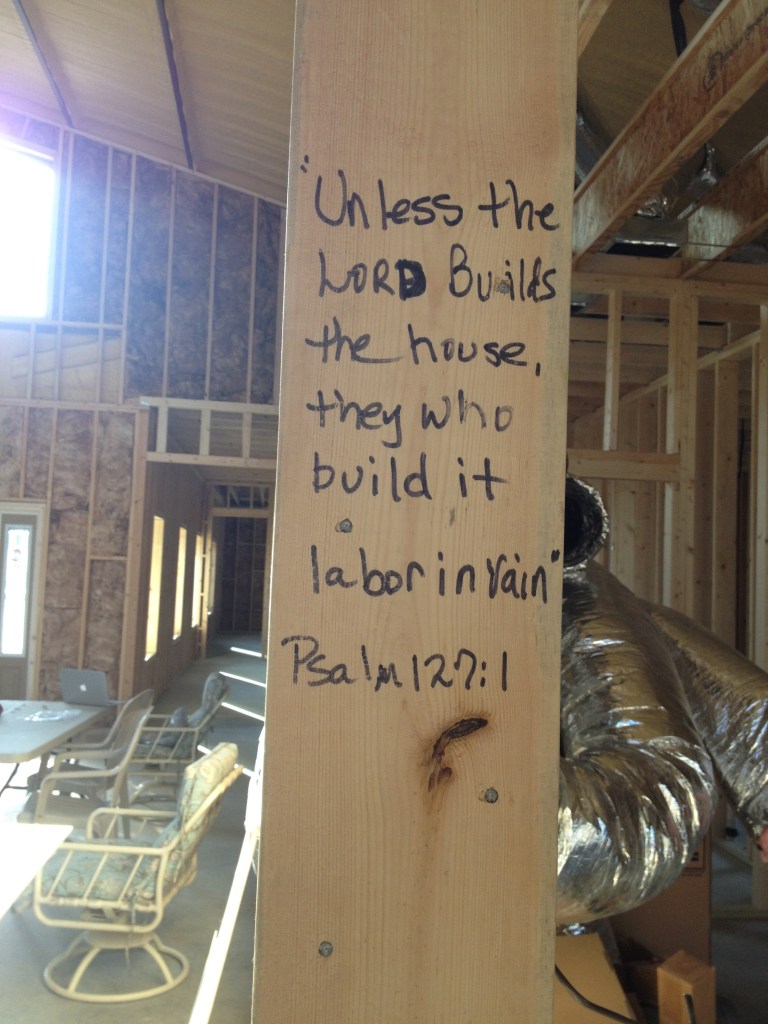 "Unless the
LORD Builds
the house,
they who
build it
labor in vain"
Psalm 127:1